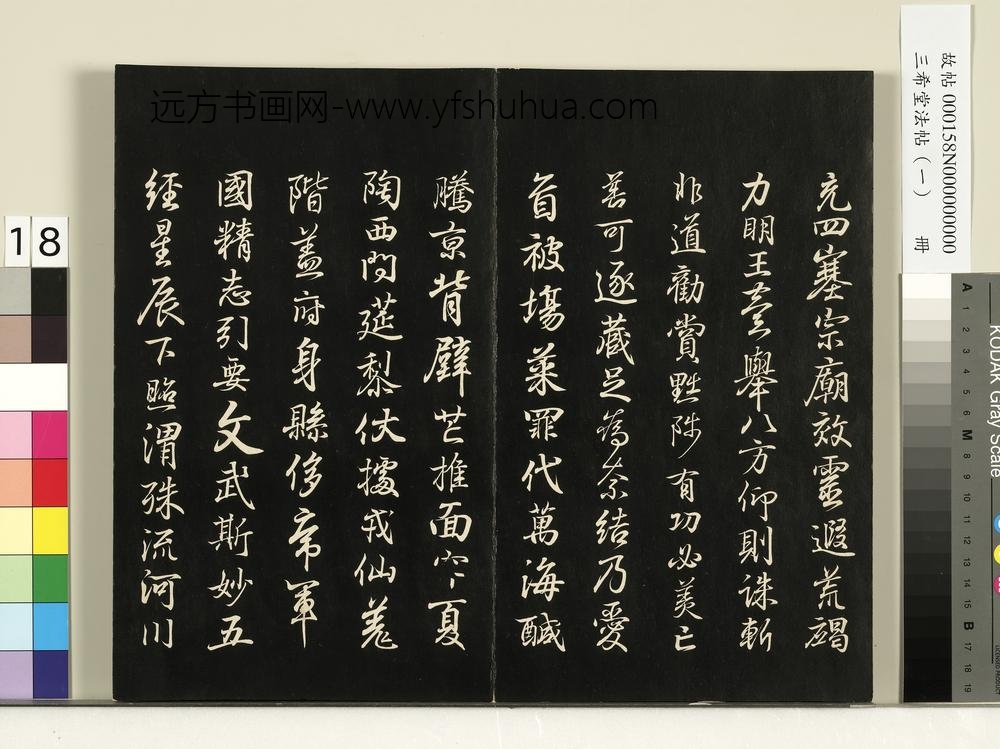 远方书画网-www.yfshuhua.com
充四塞宗廟效靈遐荒竭
力明王舉八方仰則誅斬
非道勸賞黜陟有功必美亡
善可逐藏足為奈結乃愛
首被場菜罪代萬海醎
騰京背辟芒推面夏
陶西問筵黎伏據戎仙羌
階蓋府身縣侈帝軍
國精志引要文武斯妙五
經星辰下照渭殊流河川
故帖 000158N000000000
三希堂法帖（一） 冊
18
KODAK Gray Scale
A 1 2 3 4 5 6 M 8 9 10 11 12 13 14 15 B 17 18 19